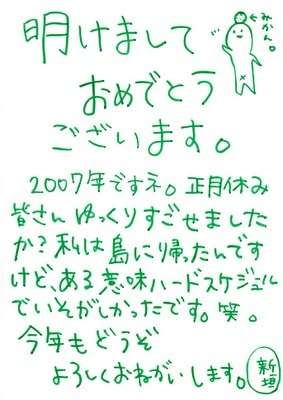 明けまして
おめでとう
ございます。
←みかん。
2007年ですネ。正月休み
皆さんゆっくりすごせました
か？私は島に帰ったんです
けど、ある意味ハードスケジュール
でいそがしかったです。笑。
今年もどうぞ
よろしくおねがいします。
新垣